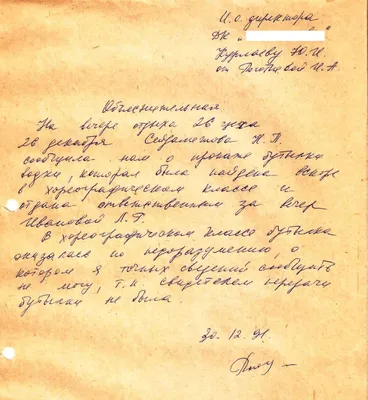 И.о. директора
ДК "
Курлаеву Ю.И.
от И.А.
Объяснительная
На вечере отдыха 26 цеха
26 декабря Н.П.
сообщила нам о пропаже бутылки
водки, которая была найдена вскоре
в хореографическом классе и
отдана ответственным за вечер
Ивановой Л.Г.
В хореографическом классе бутылка
оказалась по недоразумению, о
котором я точных сведений сообщить
не могу, т.к. свидетелем передачи
бутылки не была.
30.12.91.